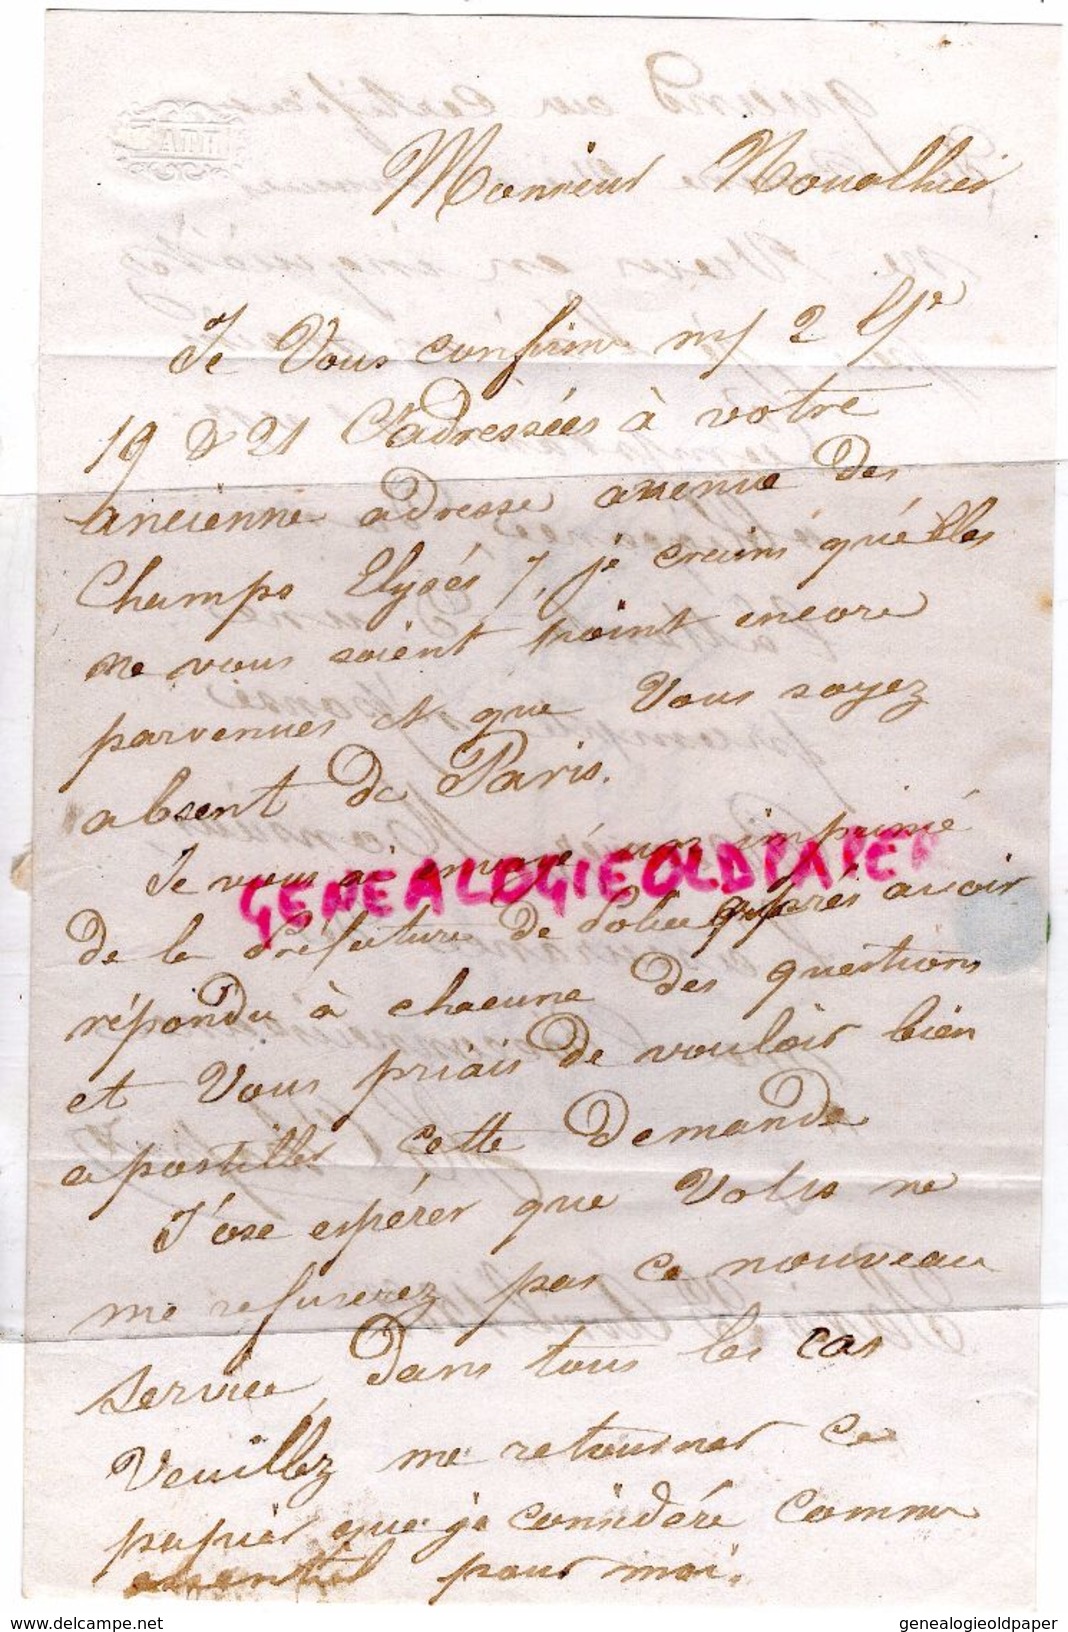 BATH
Monsieur Noualhier
Je Vous confirme m/ 2 l/re
19 & 21 Ct adressées à votre
ancienne adresse avenue des
Champs Elysés 7, je crains qu'élles
ne vous soient point encore
parvenues et que Vous soyez
absent de Paris.
Je vous ai envoyé un imprimé
de la Préfecture de Police après avoir
répondu à chacune des questions
et Vous priais de vouloir bien
apostiller cette demande
J'ose espérer que Vous ne
me refuserez pas ce nouveau
service, dans tous les cas
Veuillez me retourner ce
papier que je considére comme
essentiel pour moi.
GENEALOGIEOLDPAPER
www.delcampe.net
genealogieoldpaper